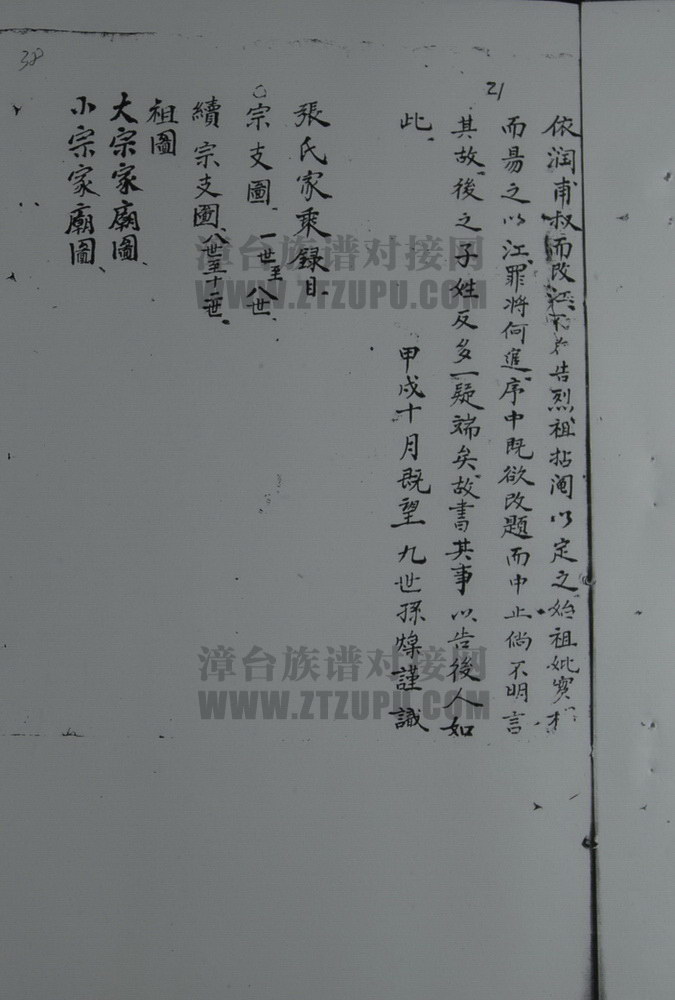 依润甫叔而改江
告烈祖拈阄以定之始祖妣實
而易之以江罪將何逭序中既欲改題而中止倘不明言
其故後之子姓反多一疑端矣故書其事以告後人如
此
甲戌十月既望九世孫煒謹識
張氏家乘錄目
宗支圖 一世至八世
續宗支圖 八世至十二世
祖圖
大宗家廟圖
小宗家廟圖
21
38
漳台族谱对接网
WWW.ZTZUPU.COM
漳台族谱对接网
WWW.ZTZUPU.COM